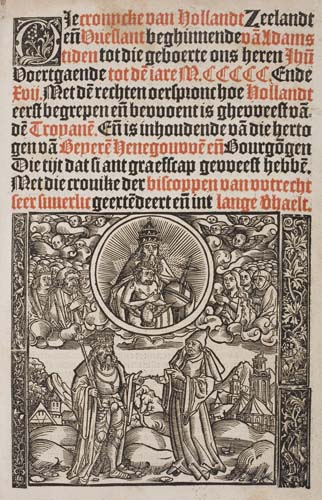 Die cronycke van Hollandt Zeelandt
eñ Vrieslant beghinnende vã Adams
tiden tot die geboerte ons heren Jhũ
Voertgaende tot dẽ iare M.CCCCC. Ende
xvij. Met dẽ rechten oerspronc hoe Hollandt
eerst begrepen eñ bewoent is ghevveest vã
dẽ Troyanẽ. Eñ is inhoudende vã die herto
gen vã Beyerẽ Henegouvvẽ eñ Bourgõgen
Die tijt dat si ant graefscap gevveest hebbẽ.
Met die cronike der biscoppen van vvtrecht
seer suuerlic geextendeert eñ int lange vhaelt.